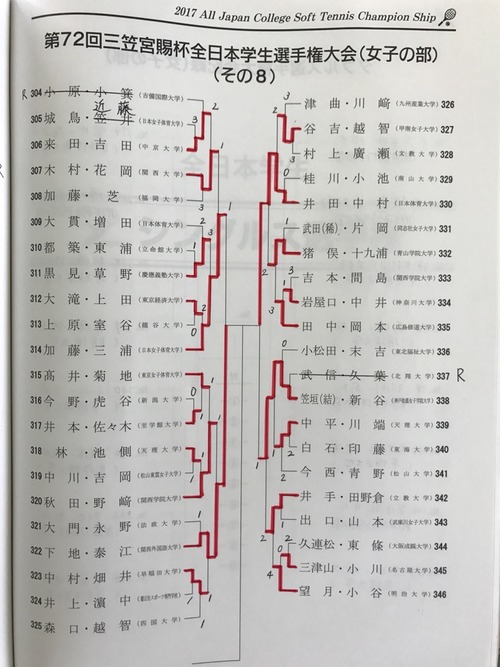 2017 All Japan College Soft Tennis Champion Ship
第72回三笠宮賜杯全日本学生選手権大会(女子の部)
(その8)
R 304 小原・小箕 (吉備国際大学)
近藤
305 城鳥・笠井 (日本女子体育大学)
306 来田・吉田 (中京大学)
307 木村・花岡 (関西大学)
308 加藤・芝 (福岡大学)
309 大貫・増田 (日本体育大学)
310 都築・東浦 (立命館大学)
311 黒見・草野 (慶應義塾大学)
312 大滝・上田 (東京経済大学)
313 上原・室谷 (龍谷大学)
314 加藤・三浦 (日本女子体育大学)
315 髙井・菊地 (東京女子体育大学)
316 今野・虎谷 (新潟大学)
317 井本・佐々木 (至学館大学)
318 林・池側 (天理大学)
319 中川・吉岡 (松山東雲女子大学)
320 秋田・野﨑 (関西学院大学)
321 大門・永野 (法政大学)
322 下地・泰江 (関西外国語大学)
323 中村・畑井 (早稲田大学)
324 井上・濵中
325 森口・越智 (四国大学)
津曲・川﨑 (九州産業大学) 326
谷吉・越智 (甲南女子大学) 327
村上・廣瀬 (文教大学) 328
桂川・小池 (南山大学) 329
井田・中村 (日本体育大学) 330
武田(稀)・片岡 (同志社女子大学) 331
猪俣・十九浦 (青山学院大学) 332
吉本・間島 (関西学院大学) 333
岩屋口・中井 (神奈川大学) 334
田中・岡本 (広島修道大学) 335
小松田・末吉 (東北福祉大学) 336
武信・久葉 (北翔大学) 337 R
笠垣(結)・新谷 338
中平・川端 (天理大学) 339
白石・印藤 (東海大学) 340
今西・青野 (松山大学) 341
井手・田野倉 (立教大学) 342
出口・山本 (武庫川女子大学) 343
久連松・東條 (大阪成蹊大学) 344
三津山・小川 (名古屋大学) 345
望月・小谷 (明治大学) 346